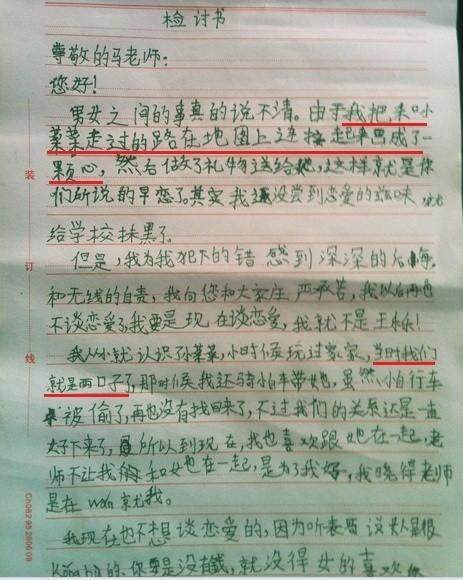 检讨书
尊敬的马老师:
您好!
男女之间的事真的说不清。由于我把和叶
菜菜走过的路在地图上连接起来画成了一
颗心,然后做了礼物送给她,这样就是你
们所说的早恋了。其实我还没尝到恋爱的滋味,就
给学校抹黑了。
但是,我为我犯下的错感到深深的后悔
和无线的自责,我向您和大家庄严承诺,我以后再也
不谈恋爱了,我要是现在谈恋爱,我就不是王
我从小就认识孙菜菜,小时候玩过家家,当时我们
就是两口子了,那时候我还骑小白车带她,虽然小白行车
被偷了,再也没有找回来了,不过我们的关系还是一直
好下来了,所以到现在,我也喜欢跟她在一起,老
师不让我和她在一起,是为了我好,我晓得老师
是在wǎn救我。
我现在也不想谈恋爱的,因为听表哥说女人是很
的,你要是没有钱,就没得女的喜欢你
装
订
线